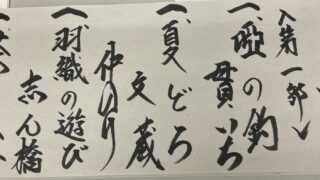 入第一部
一、唖の釣
貫いち
一、夏どろ
文蔵
仲入り
一、羽織の遊び
志ん橋